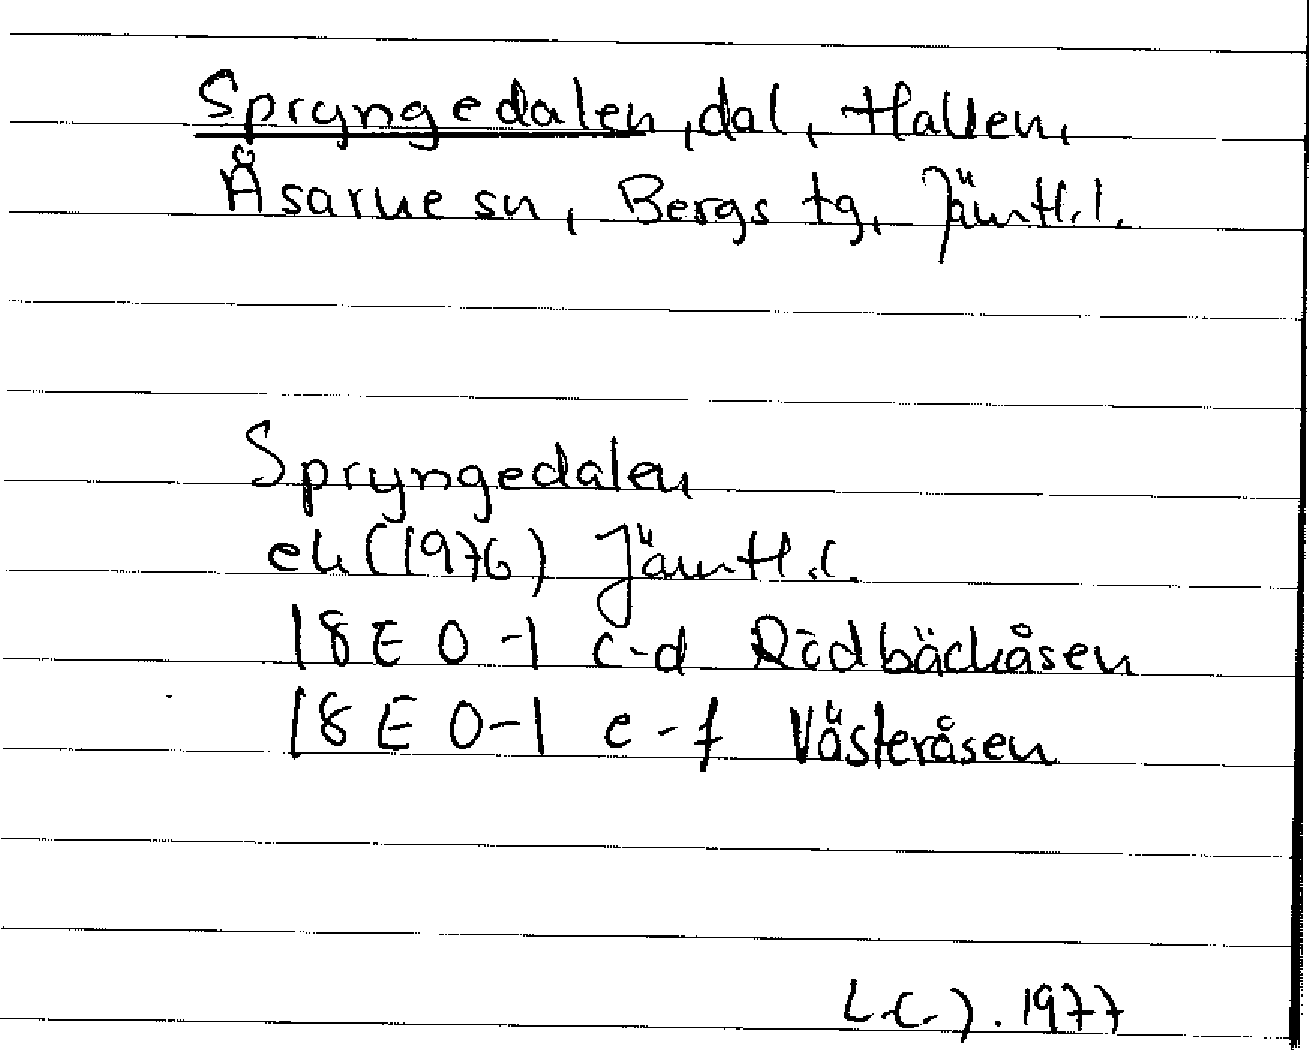 Spryngedalen, dal, Hallen,
Åsarne sn, Bergs tg, Jämtl.l.
Spryngedalen
ek (1976) Jämtl.l.
18E 0-1 c-d Rödbäckåsen
18E 0-1 e-f Västeråsen
1977